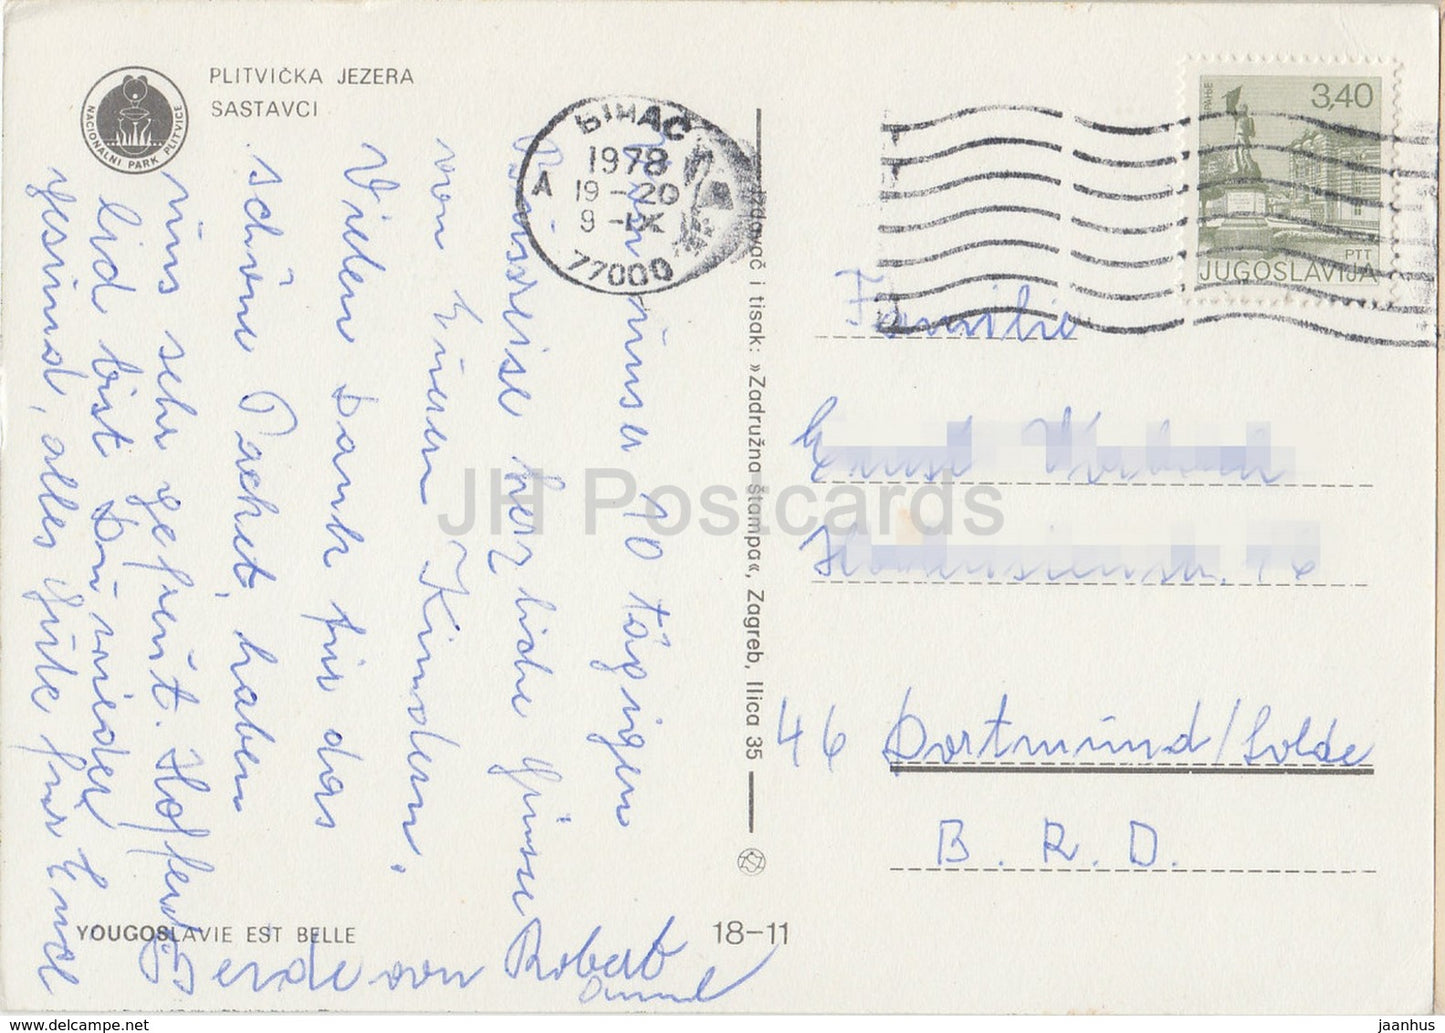 PLITVIČKA JEZERA
SASTAVCI
NACIONALNI PARK PLITVICE
BIHAĆ
1978
19-20
9-IX
A
77000
3,40
ВРАЊЕ
PTT
JUGOSLAVIJA
unser 10 tägigen
Busreise herzliche Grüsse
von Euren Kindern.
Vielen Dank für das
schöne Packet, haben
uns sehr gefreut. Hoffent
lid bist Du wieder
gesund, alles Gute für Euch
von Robert
Familie
Ernst
46 Dortmund/Solde
B.R.D.
Izdavač i tisak: »Zadružna štampa«, Zagreb, Ilica 35
YOUGOSLAVIE EST BELLE
18-11
JH Postcards
www.delcampe.net
jaanhus